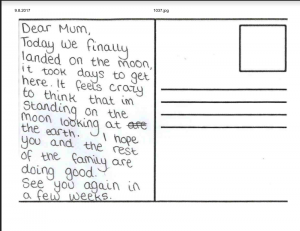 9.8.2017
1037.jpg
Dear Mum,
Today we finally
landed on the moon,
it took days to get
here. It feels crazy
to think that im
standing on the
moon looking at are
the earth. I hope
you and the rest
of the family are
doing good.
See you again in
a few weeks.